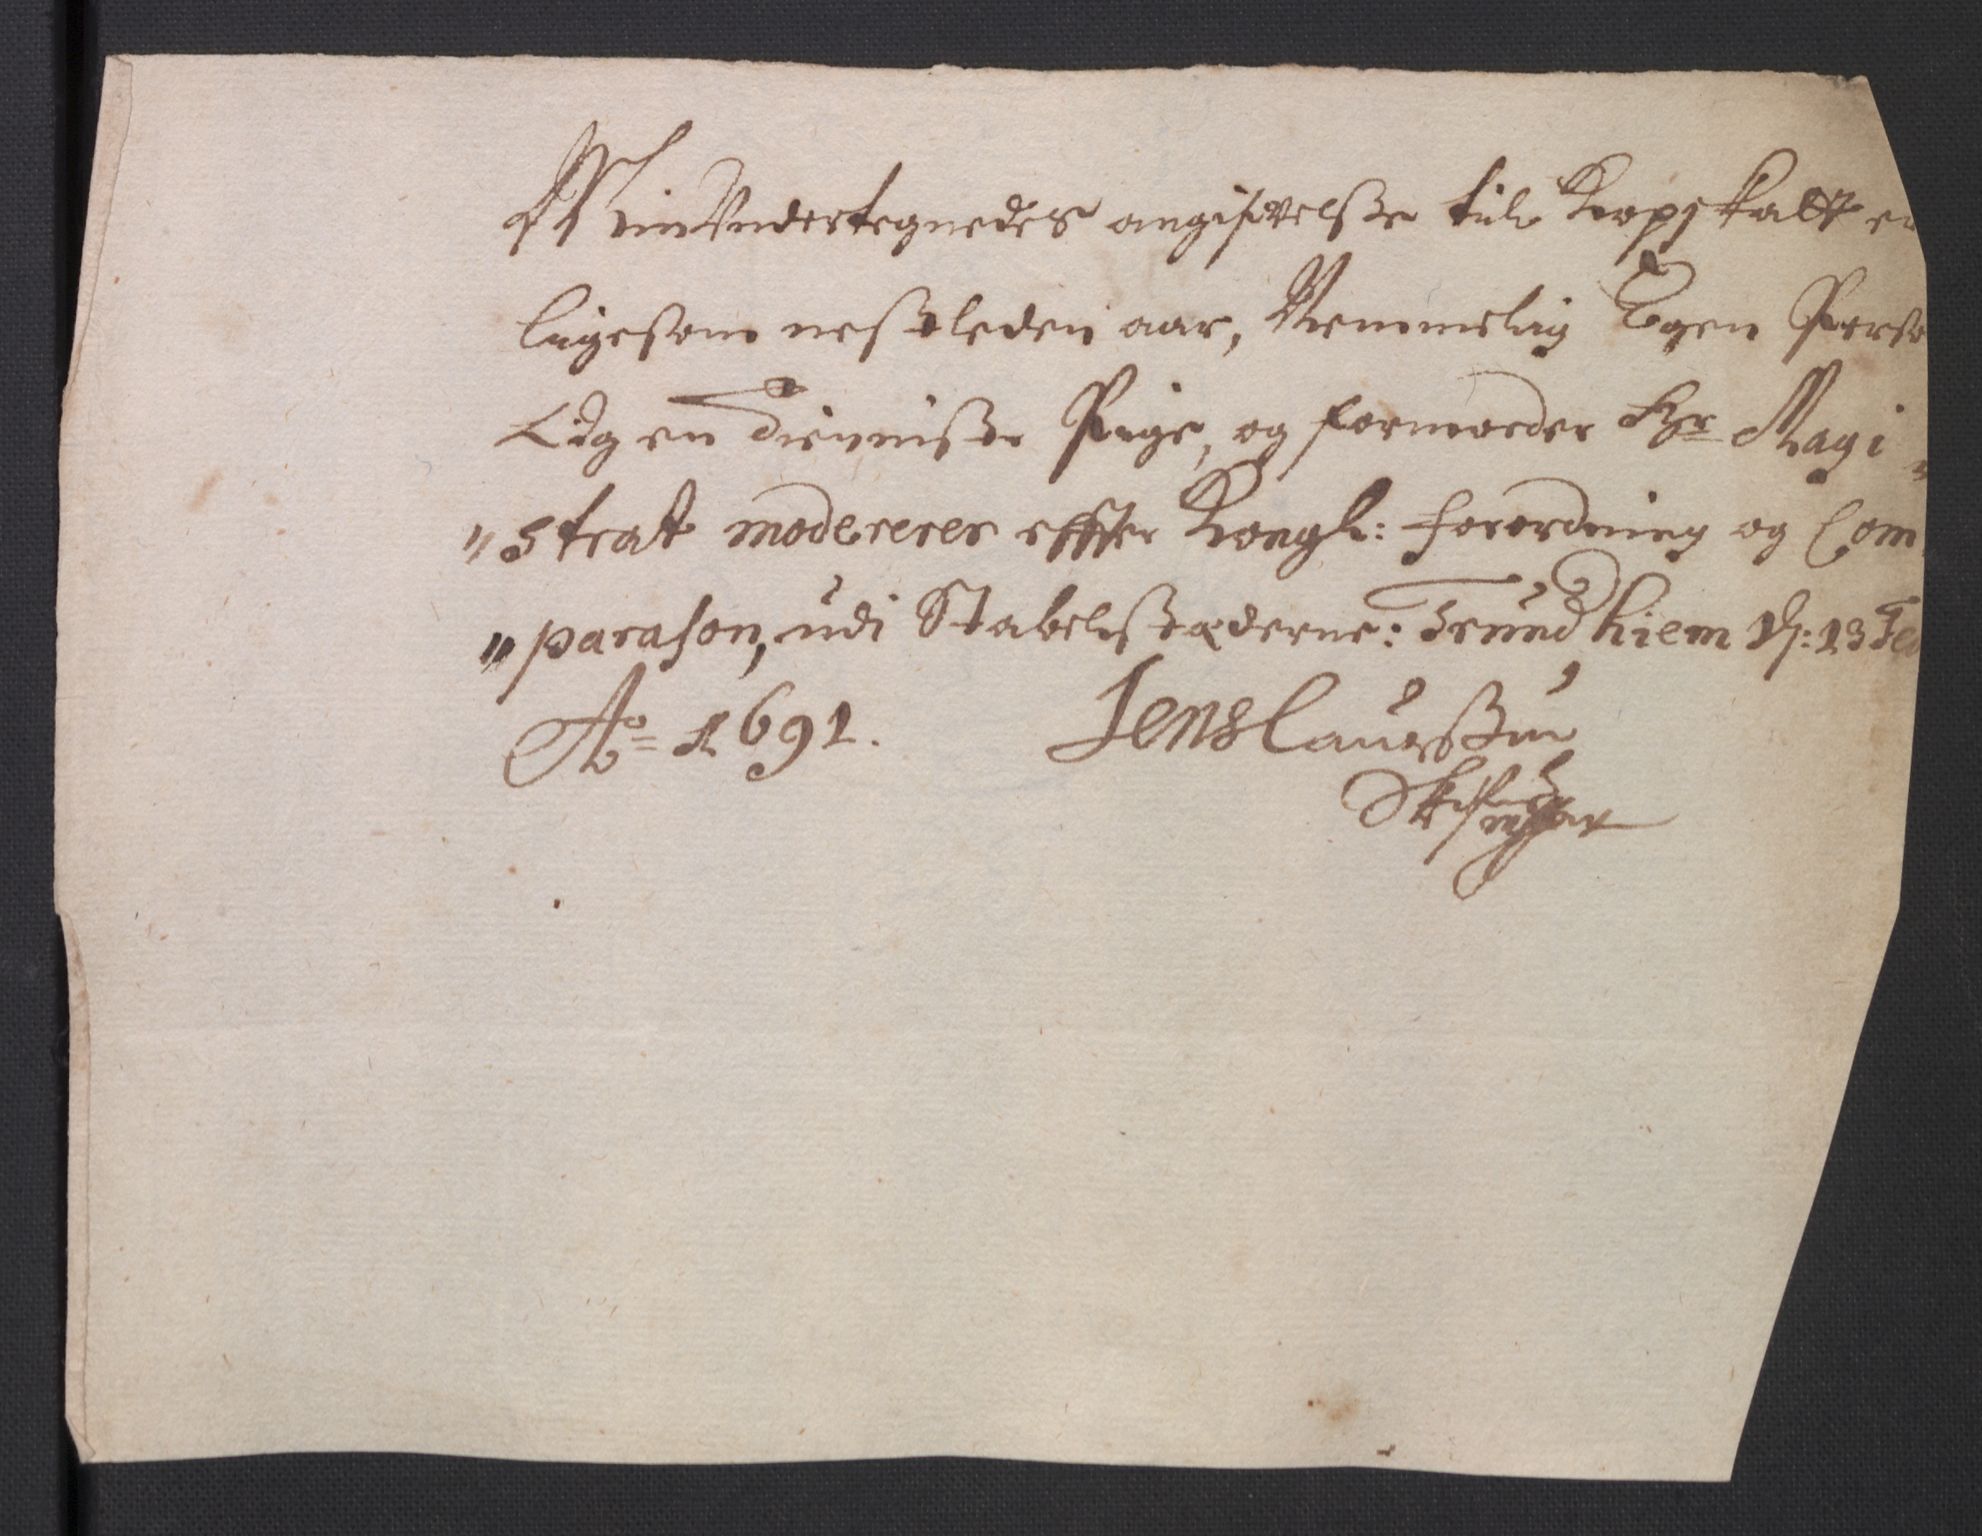 Min Undertegnedes angifvelsse till Kopskatt er
ligesom nestleden aar, Nemmelig Egen Perso
Og en Tienniste Pige, og formoeder Hr Magi
"strat modererer effter Kongl: forordning og Com
"parason, udi Stabelstæderne: Trundhiem d: 13 Feb
Ao 1691. Jens Claussen